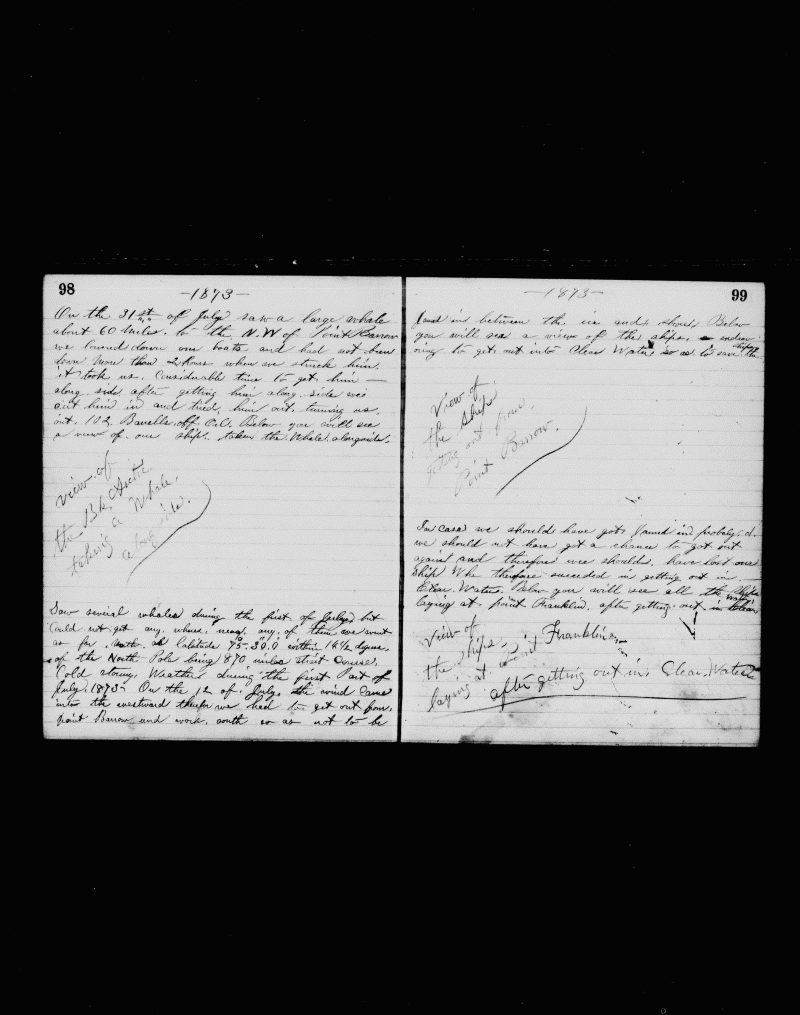 98
-1873-
On the 31st of July saw a large whale
about 60 miles. to the N.W of Point Barrow
we lowered down our boats and had not been
down more than 2 hours when we struck him,
it took us. Considerable time to get him —
along side, after getting him along side we
cut him in and tried, him out, turning us,
out. 102 Barells off. Oil. Below you will see
a view of. our ship. taken the Whale. alongside.
View of
the Bk. Arctic
taking a Whale.
along side.
Saw several whales during the first of July but
Could not get any, where, near, any, of them we went
as far North. as Latitude 75-30.0 within 14½ degrees,
of the North Pole being 870 miles strait Course.
Cold stormy, Weather during the first Part of
July. 1873- On the 12 of July. the wind Came
into the westward therefor we had to get out from,
point Barrow and work. south so as not to be
99
-1873-
Jamd in between the ice and shore, Below
you will see a view of the ships, endeav
oring to get, out into Clear Water so as to save the
ships
View of.
the Ships
getting out from
Point Barrow.
In case we should have gote Jamed in probaly, d.
we should not have got a chance to get out
again and therefore we should, have lost our
Ship Whe therfore succeded in getting out in
Clear, Water. Below you will see all the Ships
laying at. point Franklin, after getting. out. in Clear
water,
View of
the ships.
laying at Point Franklin,
after getting out in, Clear, Water